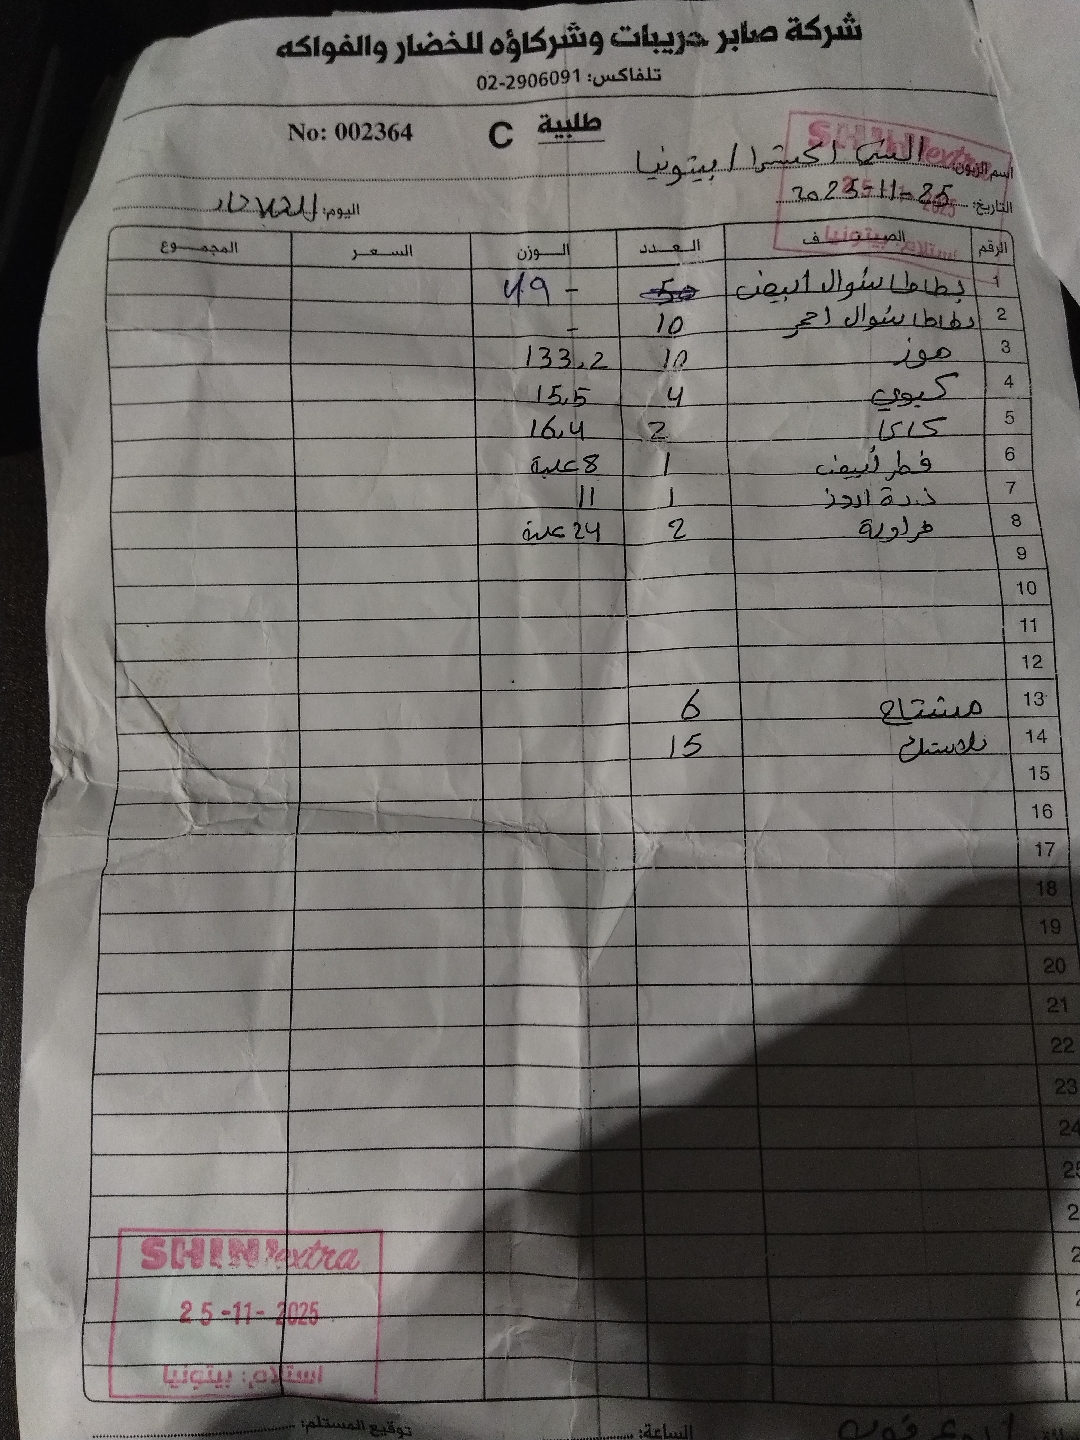 شركة صابر حريبات وشركاؤه للخضار والفواكه
تلفاكس: 02-2906091
No: 002364 C طلبية
SHINI extra
25-11-2025
استلام: بيتونيا
اسم الزبون: الشني اكسترا / بيتونيا
التاريخ: 2025-11-25 اليوم: الثلاثاء
الرقم الصنف العدد الوزن السعر المجموع
1 بطاطا شوال ابيض 50 - 49
2 بطاطا شوال احمر 10 -
3 موز 10 133.2
4 كيوي 4 15.5
5 كاكا 2 16.4
6 فطر أبيض 1 8 علبة
7 1 11
8 2 24 علبة
9
10
11
12
13 مشتاح 6
14 بلاستيك 15
15
16
17
18
19
20
21
22
23
24
25
SHINI extra
25-11-2025
استلام: بيتونيا
الساعة: توقيع المستلم: